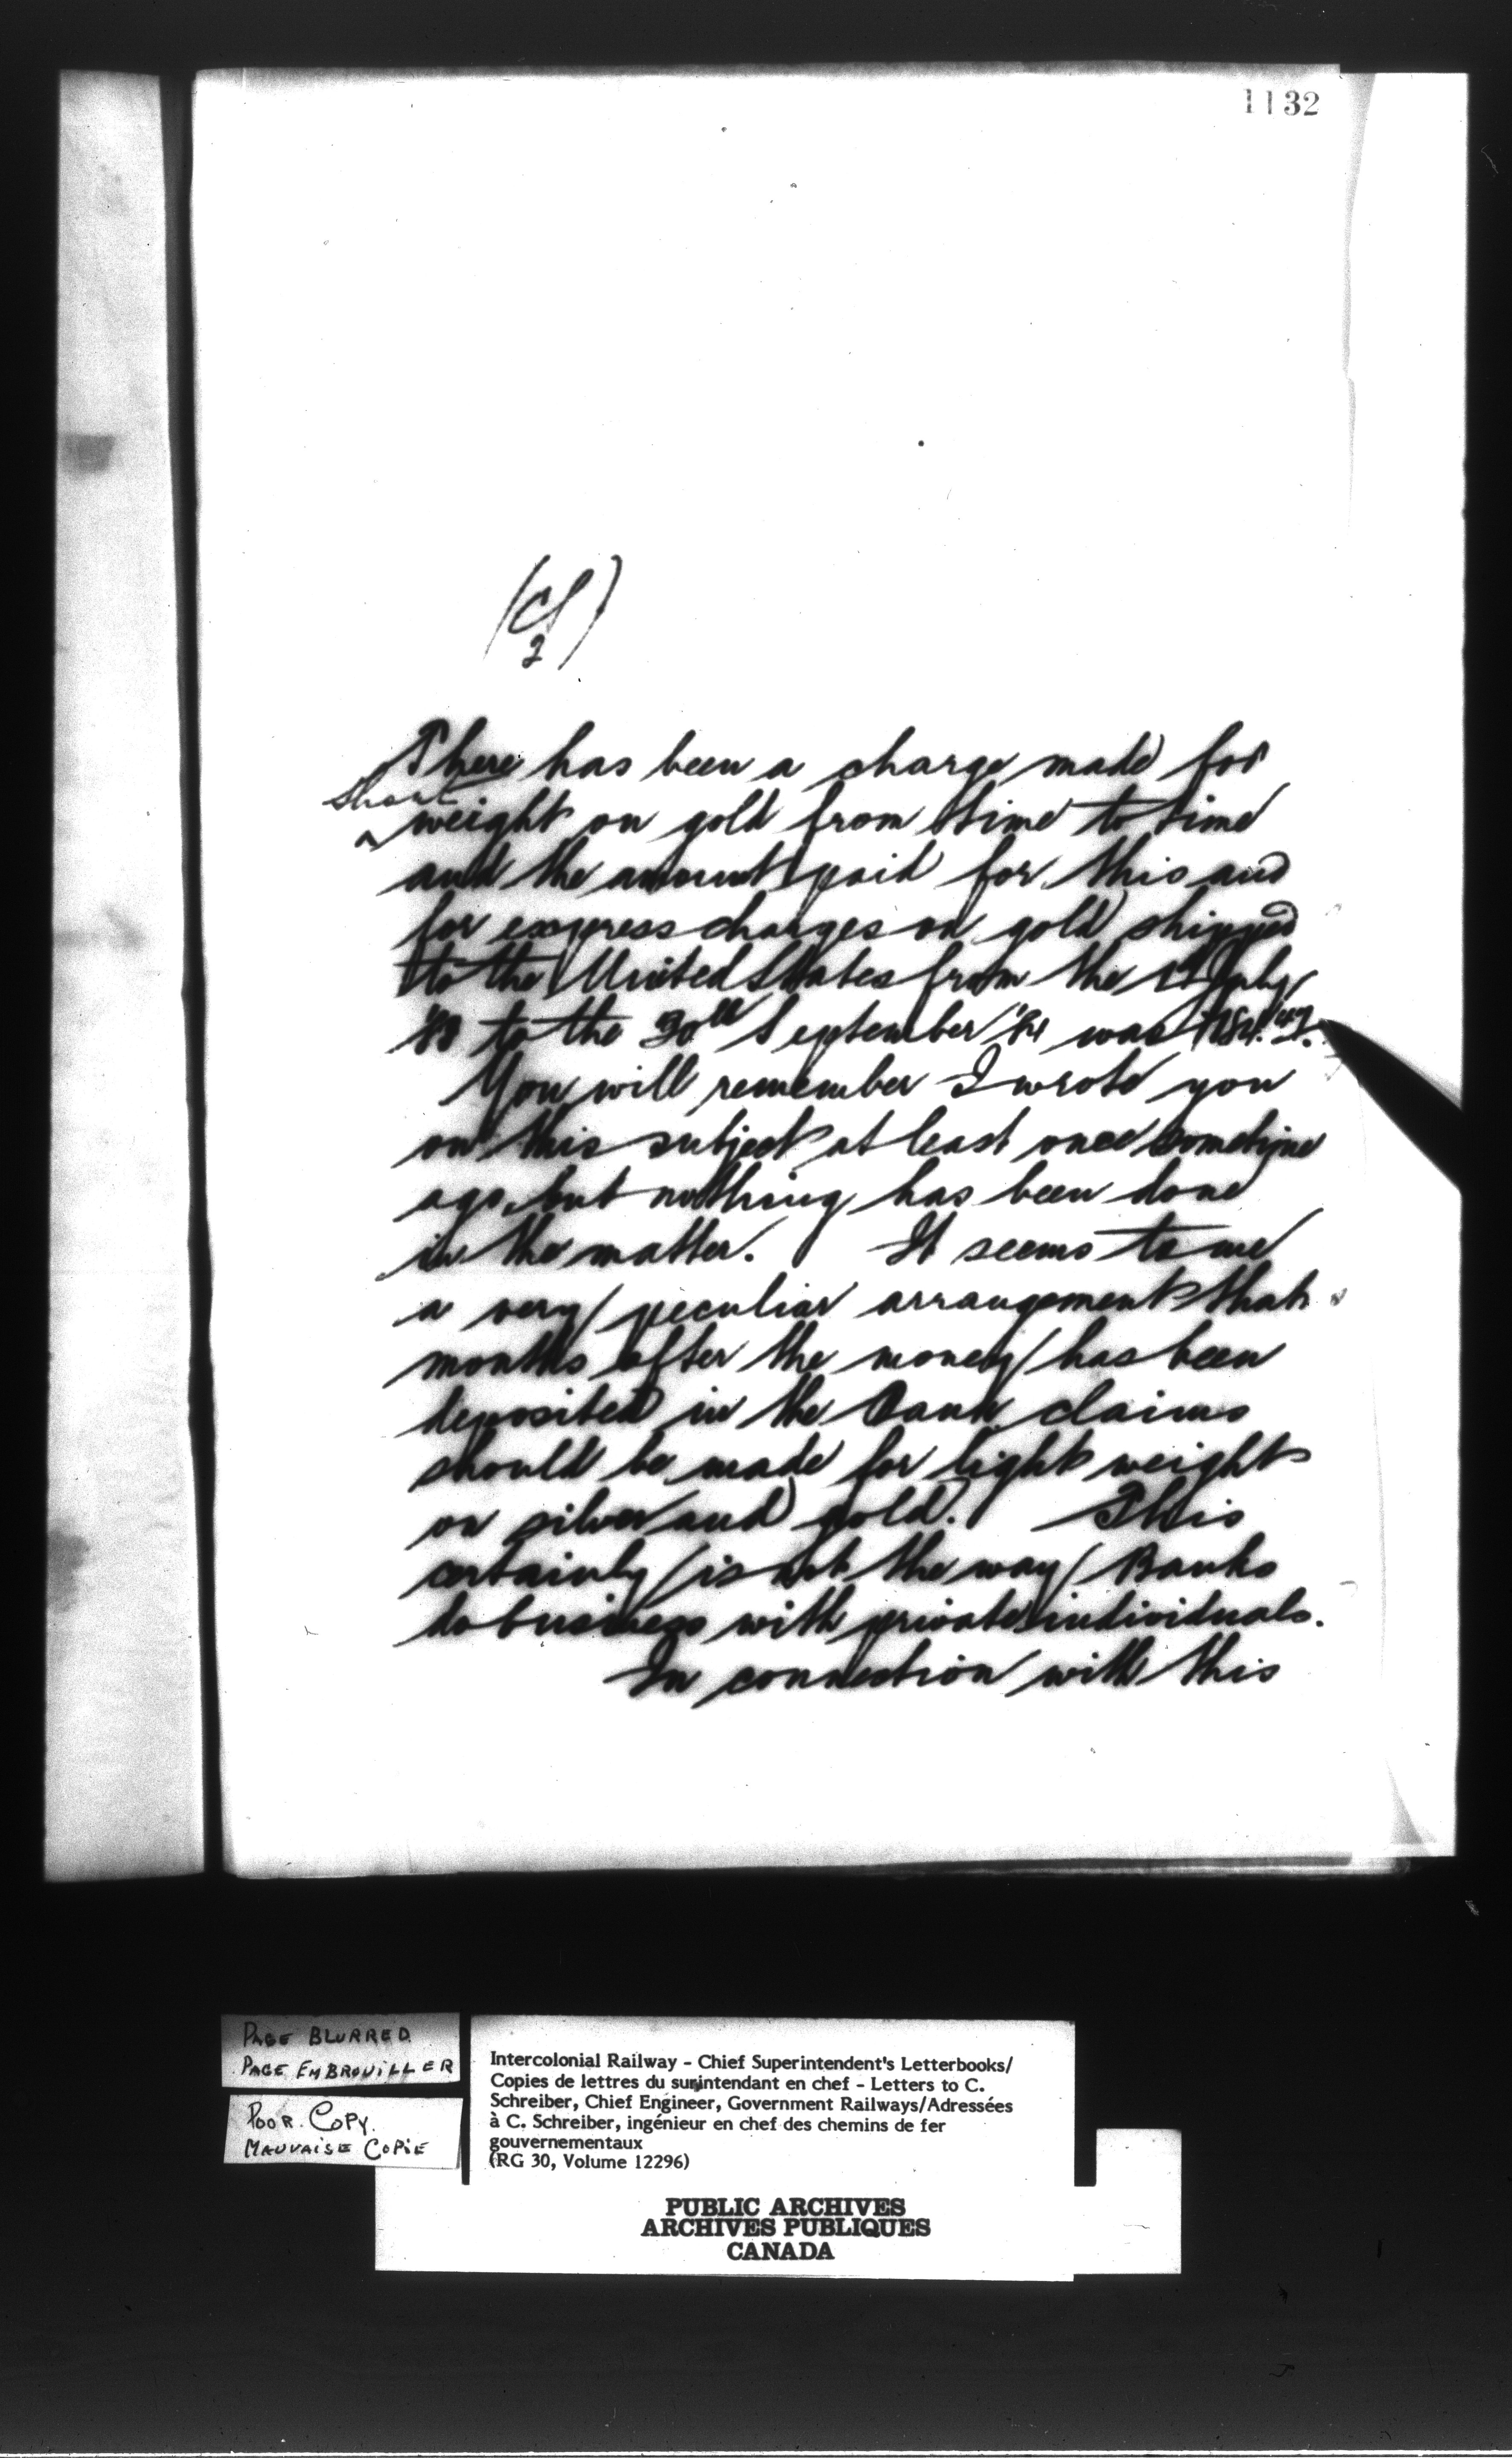 1132
(CS)
2
There has been a charge made for
short
weight on gold from time to time
and the amount paid for this and
for express charges on gold shipped
to the United States from the 1st July
'83 to the 30th September '84 was
You will remember I wrote you
on this subject at least once sometime
ago, but nothing has been done
in the matter. It seems to me
a very peculiar arrangement that
months after the money has been
deposited in the Bank claims
should be made for light weight
on silver and gold. This
certainly is not the way Banks
do business with private individuals.
In connection with this
PAGE BLURRED
PAGE EMBROUILLER
POOR COPY.
MAUVAISE COPIE
Intercolonial Railway - Chief Superintendent's Letterbooks/
Copies de lettres du surintendant en chef - Letters to C.
Schreiber, Chief Engineer, Government Railways/Adressées
à C. Schreiber, ingénieur en chef des chemins de fer
gouvernementaux
(RG 30, Volume 12296)
PUBLIC ARCHIVES
ARCHIVES PUBLIQUES
CANADA